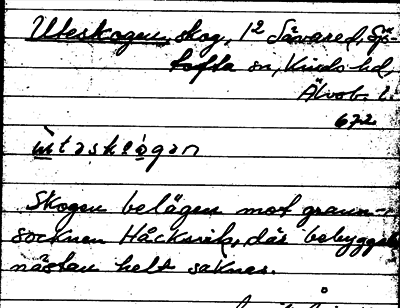 Uteskogen, skog, 1² Sävared, Sjö-
tofta sn, Kinds hd,
Älvsb. l.
672
ùtəskògən
Skogen belägen mot grann-
socknen Håcksvik, där bebyggelse
nästan helt saknas.